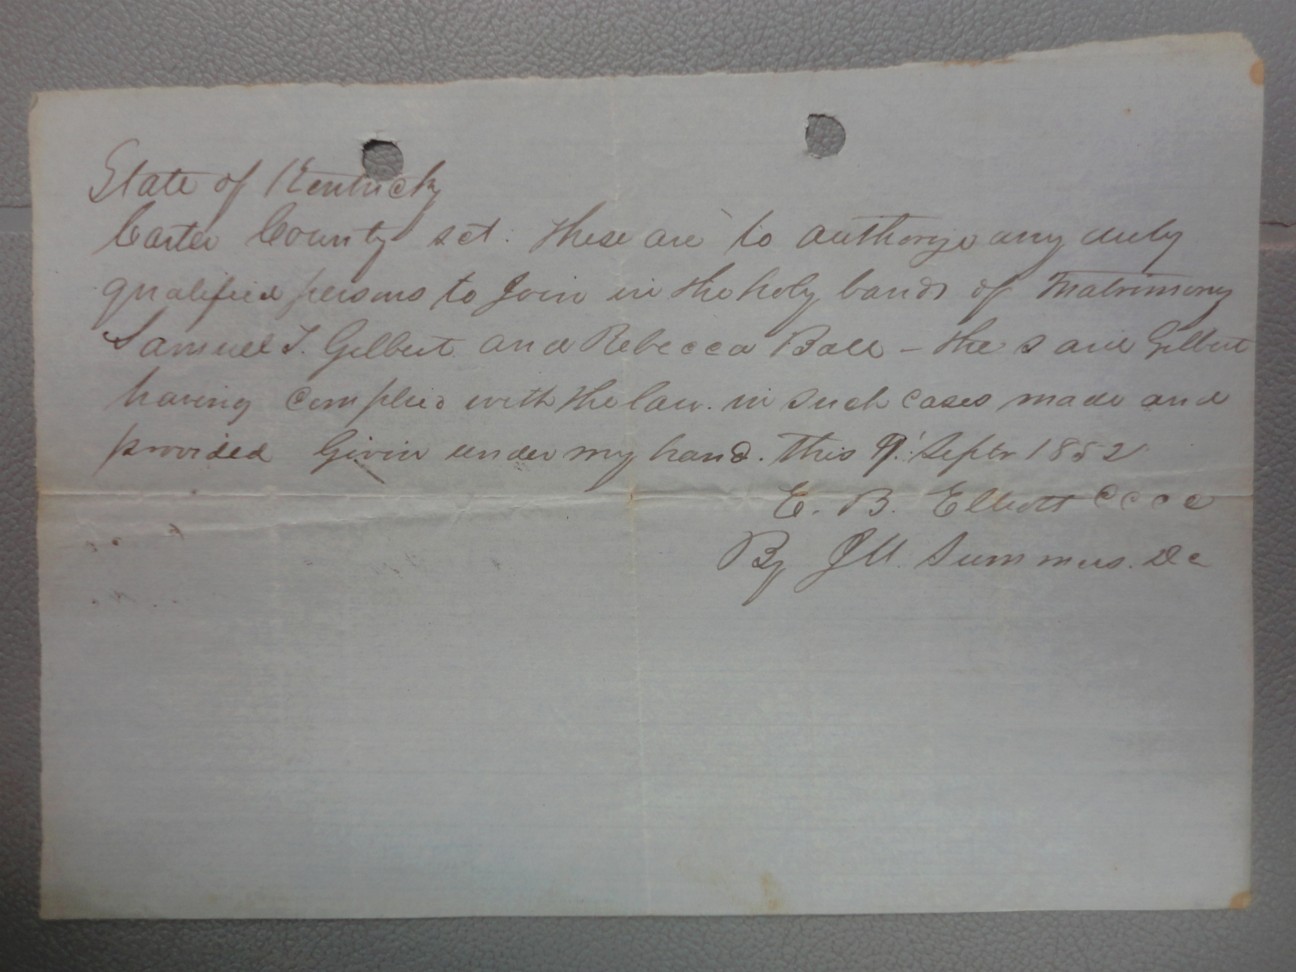 State of Kentucky
Carter County sct. These are to authorize any duly
qualified persons to Join in the holy bands of Matrimony
Samuel T. Gilbert and Rebecca Ball – the said Gilbert
having complied with the law in such cases made and
provided Given under my hand. this 9' Septr 1852
E. B. Elliott CCCC
By J M. Summers. DC